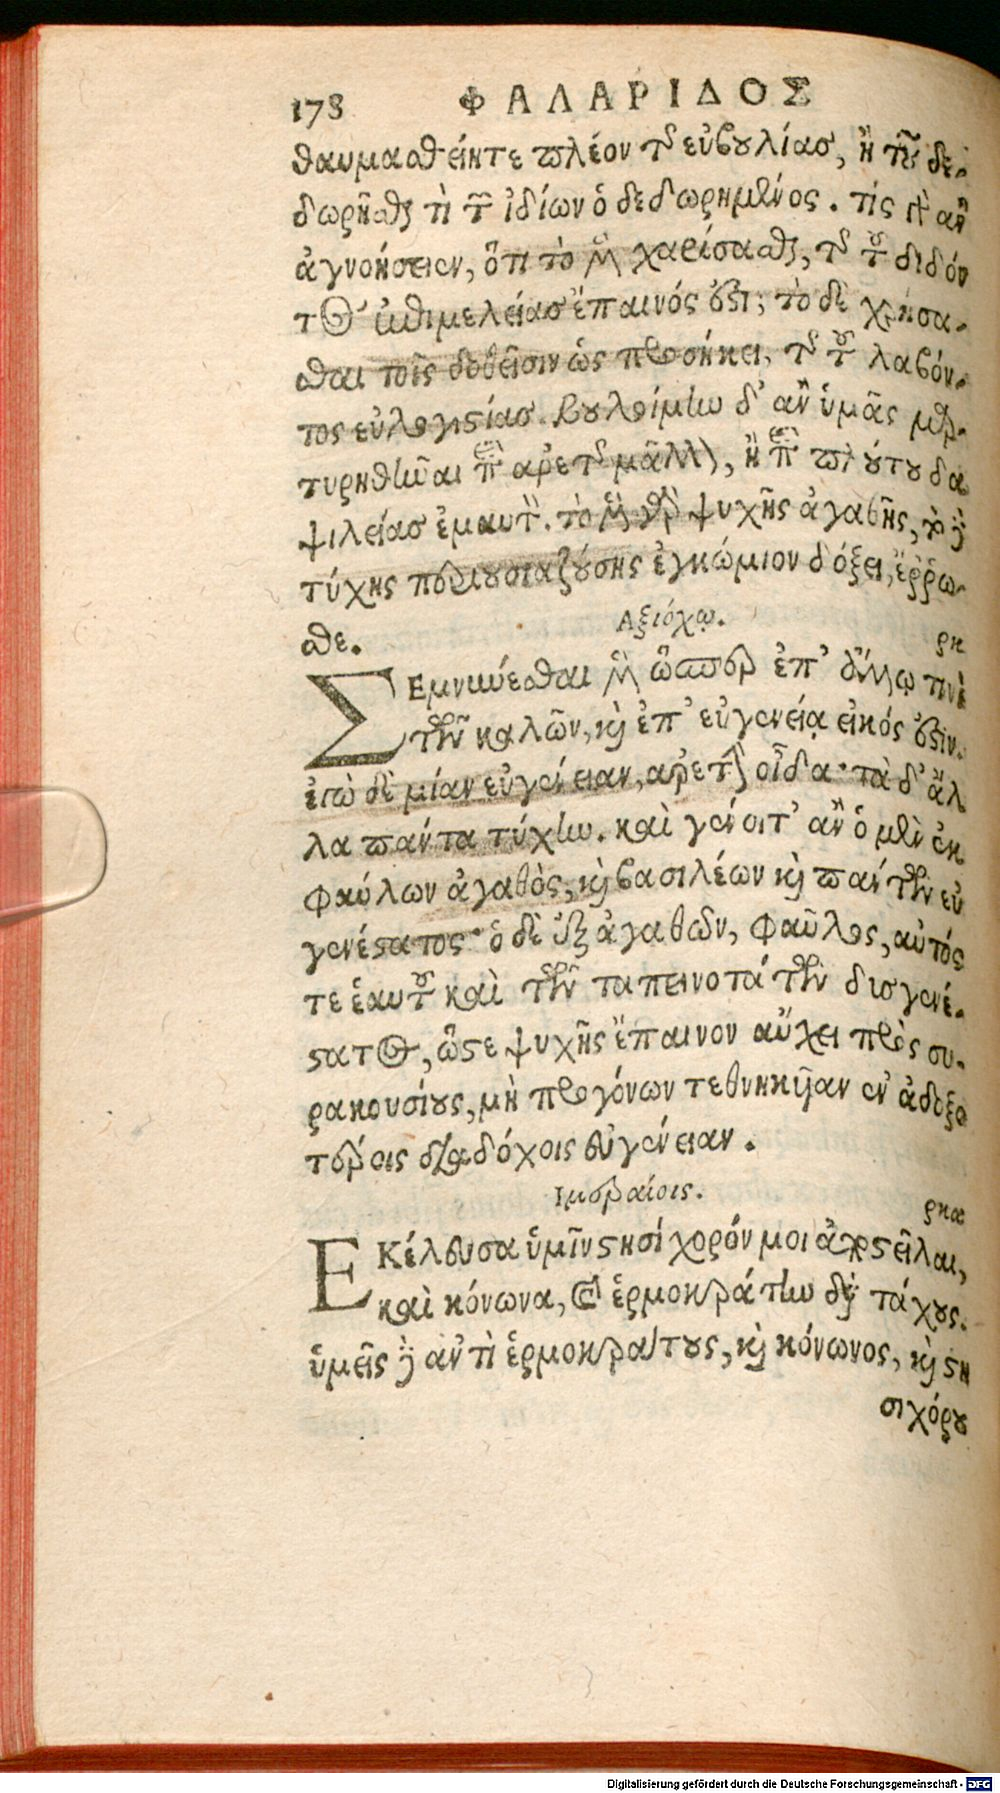 178 ΦΑΛΑΡΙΔΟΣ
θαυμασθείητε πλέον τῆς εὐβουλίας, ἢ τῷ δε-
δωρῆσθαί τι τῶν ἰδίων ὁ δεδωρημένος. τίς γὰρ ἂν
ἀγνοήσειεν, ὅτι τὸ μὲν χαρίσασθαι, τῆς τοῦ διδόν
τος ἐπιμελείας ἔπαινός ἐστι, τὸ δὲ χρήσα-
σθαι τοῖς δοθεῖσιν ὡς προσήκει, τῆς τοῦ λαβόν-
τος εὐλογιστίας. βουλοίμην δ' ἂν ὑμᾶς μαρ-
τυρηθῆναι ἐπὶ ἀρετῆς μᾶλλον, ἢ ἐπὶ πλούτου δα
ψιλείας ἐμαυτὸν. τὸ μὲν γὰρ ψυχῆς ἀγαθῆς, τὸ δὲ
τύχης περιουσιαζούσης ἐγκώμιον δόξει, ἔῤῥω-
σθε.
Αξιόχῳ. ρκ
ΣΕμνύνεσθαι μὲν ὥσπερ ἐπ' ἄλλῳ τινὶ
τῶν καλῶν, καὶ ἐπ' εὐγενείᾳ εἰκός ἐστιν.
ἐγὼ δὲ μίαν εὐγένειαν, ἀρετὴν οἶδα· τὰ δ' ἄλ
λα πάντα τύχην. καὶ γένοιτ' ἂν ὁ μὲν ἐκ
φαύλων ἀγαθὸς, καὶ βασιλέων καὶ πάντων εὐ
γενέστατος· ὁ δὲ ἐξ ἀγαθῶν, φαῦλος, αὐτός
τε ἑαυτοῦ καὶ τῶν ταπεινοτάτων δυσγενέ-
στατος, ὥστε ψυχῆς ἔπαινον αὔχει πρὸς συ-
ρακουσίους, μὴ προγόνων τεθνηκυῖαν ἐν ἀδοξο
τέροις διαδόχοις εὐγένειαν.
Ιμεραίοις. ρκα
ΕΚέλευσα ὑμῖν στησίχορόν μοι ἀποστεῖλαι,
καὶ κόνωνα, καὶ ἑρμοκράτην διὰ τάχους.
ὑμεῖς δὲ ἀντὶ ἑρμοκράτους, καὶ κόνωνος, καὶ στη
σιχόρου
Digitalisierung gefördert durch die Deutsche Forschungsgemeinschaft - DFG